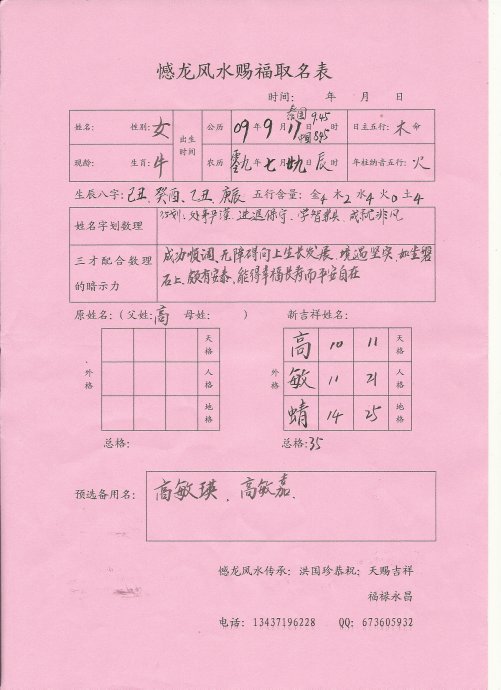 憾龙风水赐福取名表
时间: 年 月 日
姓名: 性别: 女 出生时间 公历 09年9月17日 泰国9.45 中国8.45时 日主五行: 木命
现龄: 生肖: 牛 农历 零九年七月廿九辰时 年柱纳音五行: 火
生辰八字: 己丑、癸酉、乙丑、庚辰 五行含量: 金4木2水4火0土4
姓名字划数理 35划: 处事严谨 进退保守、学智兼具 成就非凡
三才配合数理的暗示力 成功顺调、无障碍向上生长发展、境遇坚实、如坐磐
石上、颇有安泰、能得幸福长寿而平安自在
原姓名: (父姓: 高 母姓: ) 新吉祥姓名:
外格 天格 人格 地格
外格 高 10 11 天格
敏 11 21 人格
蜻 14 25 地格
总格: 总格: 35
预选备用名: 高敏瑛、高敏嘉、
憾龙风水传承: 洪国珍恭祝: 天赐吉祥
福禄永昌
电话: 13437196228 QQ: 673605932